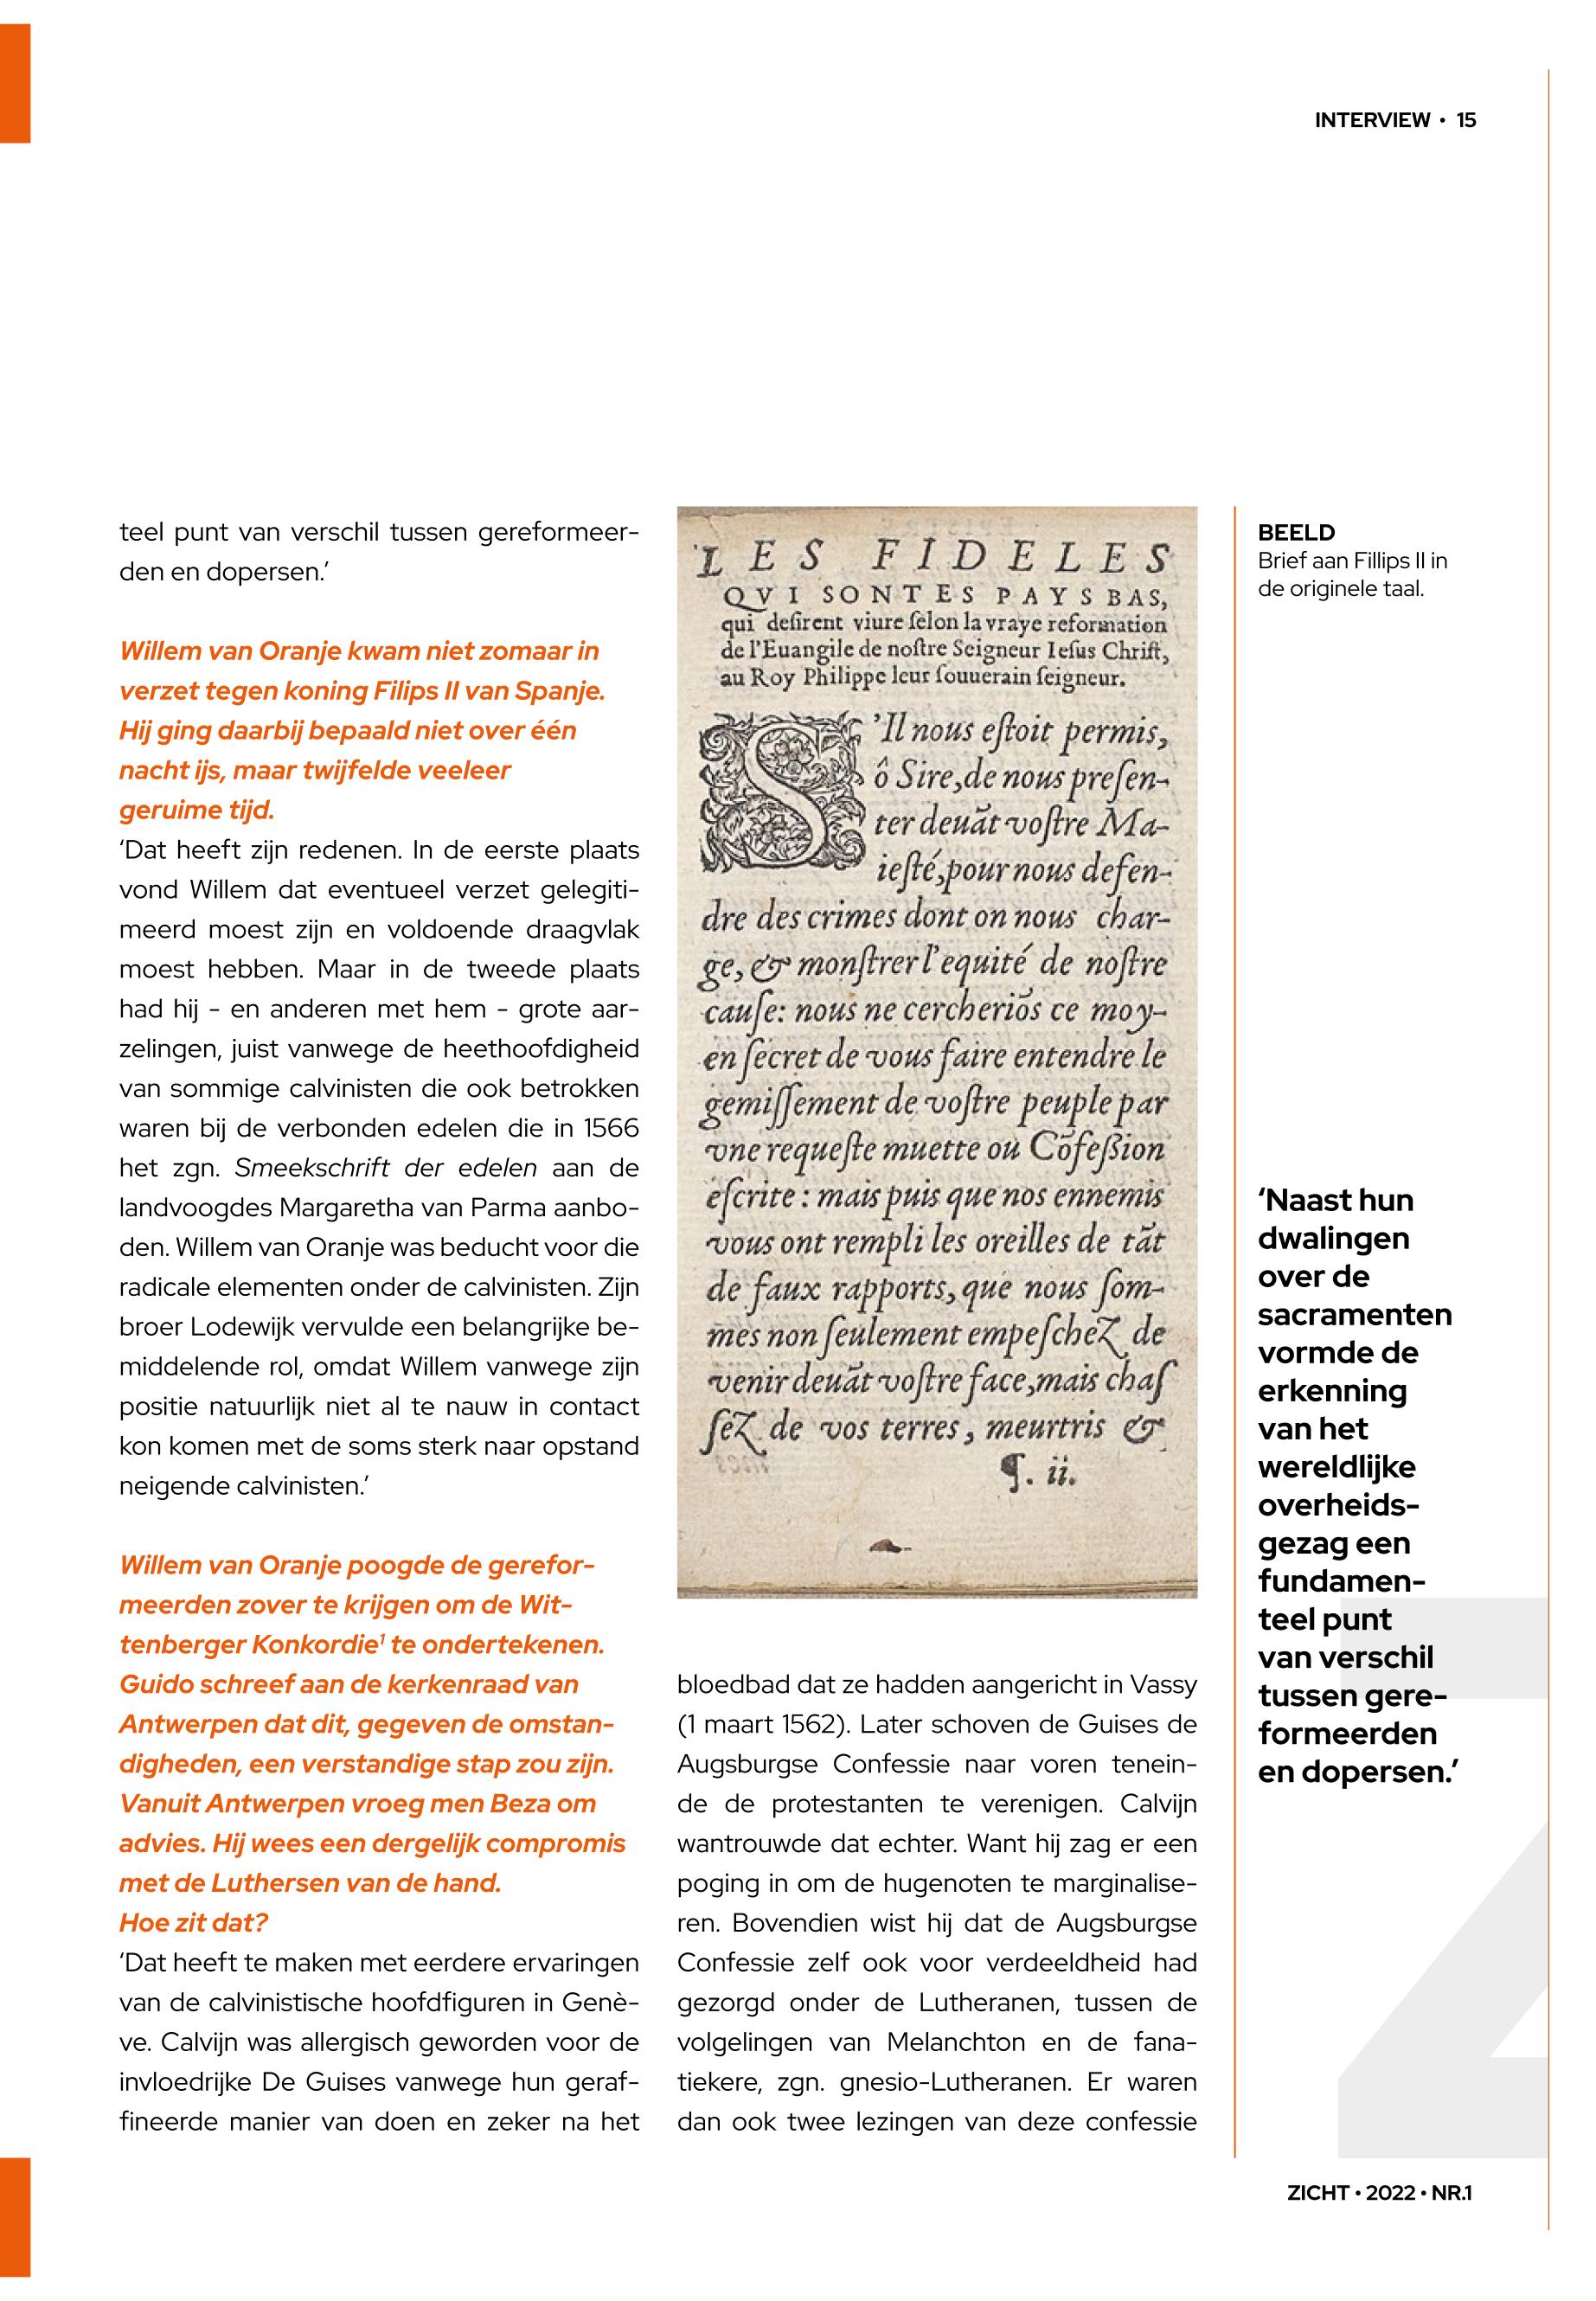 INTERVIEW • 15
teel punt van verschil tussen gereformeer-
den en dopersen.’
Willem van Oranje kwam niet zomaar in
verzet tegen koning Filips II van Spanje.
Hij ging daarbij bepaald niet over één
nacht ijs, maar twijfelde veeleer
geruime tijd.
‘Dat heeft zijn redenen. In de eerste plaats
vond Willem dat eventueel verzet gelegiti-
meerd moest zijn en voldoende draagvlak
moest hebben. Maar in de tweede plaats
had hij - en anderen met hem - grote aar-
zelingen, juist vanwege de heethoofdigheid
van sommige calvinisten die ook betrokken
waren bij de verbonden edelen die in 1566
het zgn. Smeekschrift der edelen aan de
landvoogdes Margaretha van Parma aanbo-
den. Willem van Oranje was beducht voor die
radicale elementen onder de calvinisten. Zijn
broer Lodewijk vervulde een belangrijke be-
middelende rol, omdat Willem vanwege zijn
positie natuurlijk niet al te nauw in contact
kon komen met de soms sterk naar opstand
neigende calvinisten.’
Willem van Oranje poogde de gerefor-
meerden zover te krijgen om de Wit-
tenberger Konkordie¹ te ondertekenen.
Guido schreef aan de kerkenraad van
Antwerpen dat dit, gegeven de omstan-
digheden, een verstandige stap zou zijn.
Vanuit Antwerpen vroeg men Beza om
advies. Hij wees een dergelijk compromis
met de Luthersen van de hand.
Hoe zit dat?
‘Dat heeft te maken met eerdere ervaringen
van de calvinistische hoofdfiguren in Genè-
ve. Calvijn was allergisch geworden voor de
invloedrijke De Guises vanwege hun geraf-
fineerde manier van doen en zeker na het
LES FIDELES
QVI SONT ES PAYS BAS,
qui desirent viure ſelon la vraye reformation
de l'Euangile de noſtre Seigneur Ieſus Chriſt,
au Roy Philippe leur ſouuerain ſeigneur.
S'Il nous eſtoit permis,
ô Sire, de nous preſen-
ter deuãt voſtre Ma-
ieſté, pour nous defen-
dre des crimes dont on nous char-
ge, & monſtrer l'equité de noſtre
cauſe: nous ne cercheriõs ce moy-
en ſecret de vous faire entendre le
gemiſſement de voſtre peuple par
vne requeſte muette ou Cõfeßion
eſcrite : mais puis que nos ennemis
vous ont rempli les oreilles de tãt
de faux rapports, que nous ſom-
mes non ſeulement empeſchez de
venir deuãt voſtre face, mais chaſ
ſez de vos terres, meurtris &
¶. ii.
bloedbad dat ze hadden aangericht in Vassy
(1 maart 1562). Later schoven de Guises de
Augsburgse Confessie naar voren tenein-
de de protestanten te verenigen. Calvijn
wantrouwde dat echter. Want hij zag er een
poging in om de hugenoten te marginalise-
ren. Bovendien wist hij dat de Augsburgse
Confessie zelf ook voor verdeeldheid had
gezorgd onder de Lutheranen, tussen de
volgelingen van Melanchton en de fana-
tiekere, zgn. gnesio-Lutheranen. Er waren
dan ook twee lezingen van deze confessie
BEELD
Brief aan Fillips II in
de originele taal.
‘Naast hun
dwalingen
over de
sacramenten
vormde de
erkenning
van het
wereldlijke
overheids-
gezag een
fundamen-
teel punt
van verschil
tussen gere-
formeerden
en dopersen.’
ZICHT • 2022 • NR.1